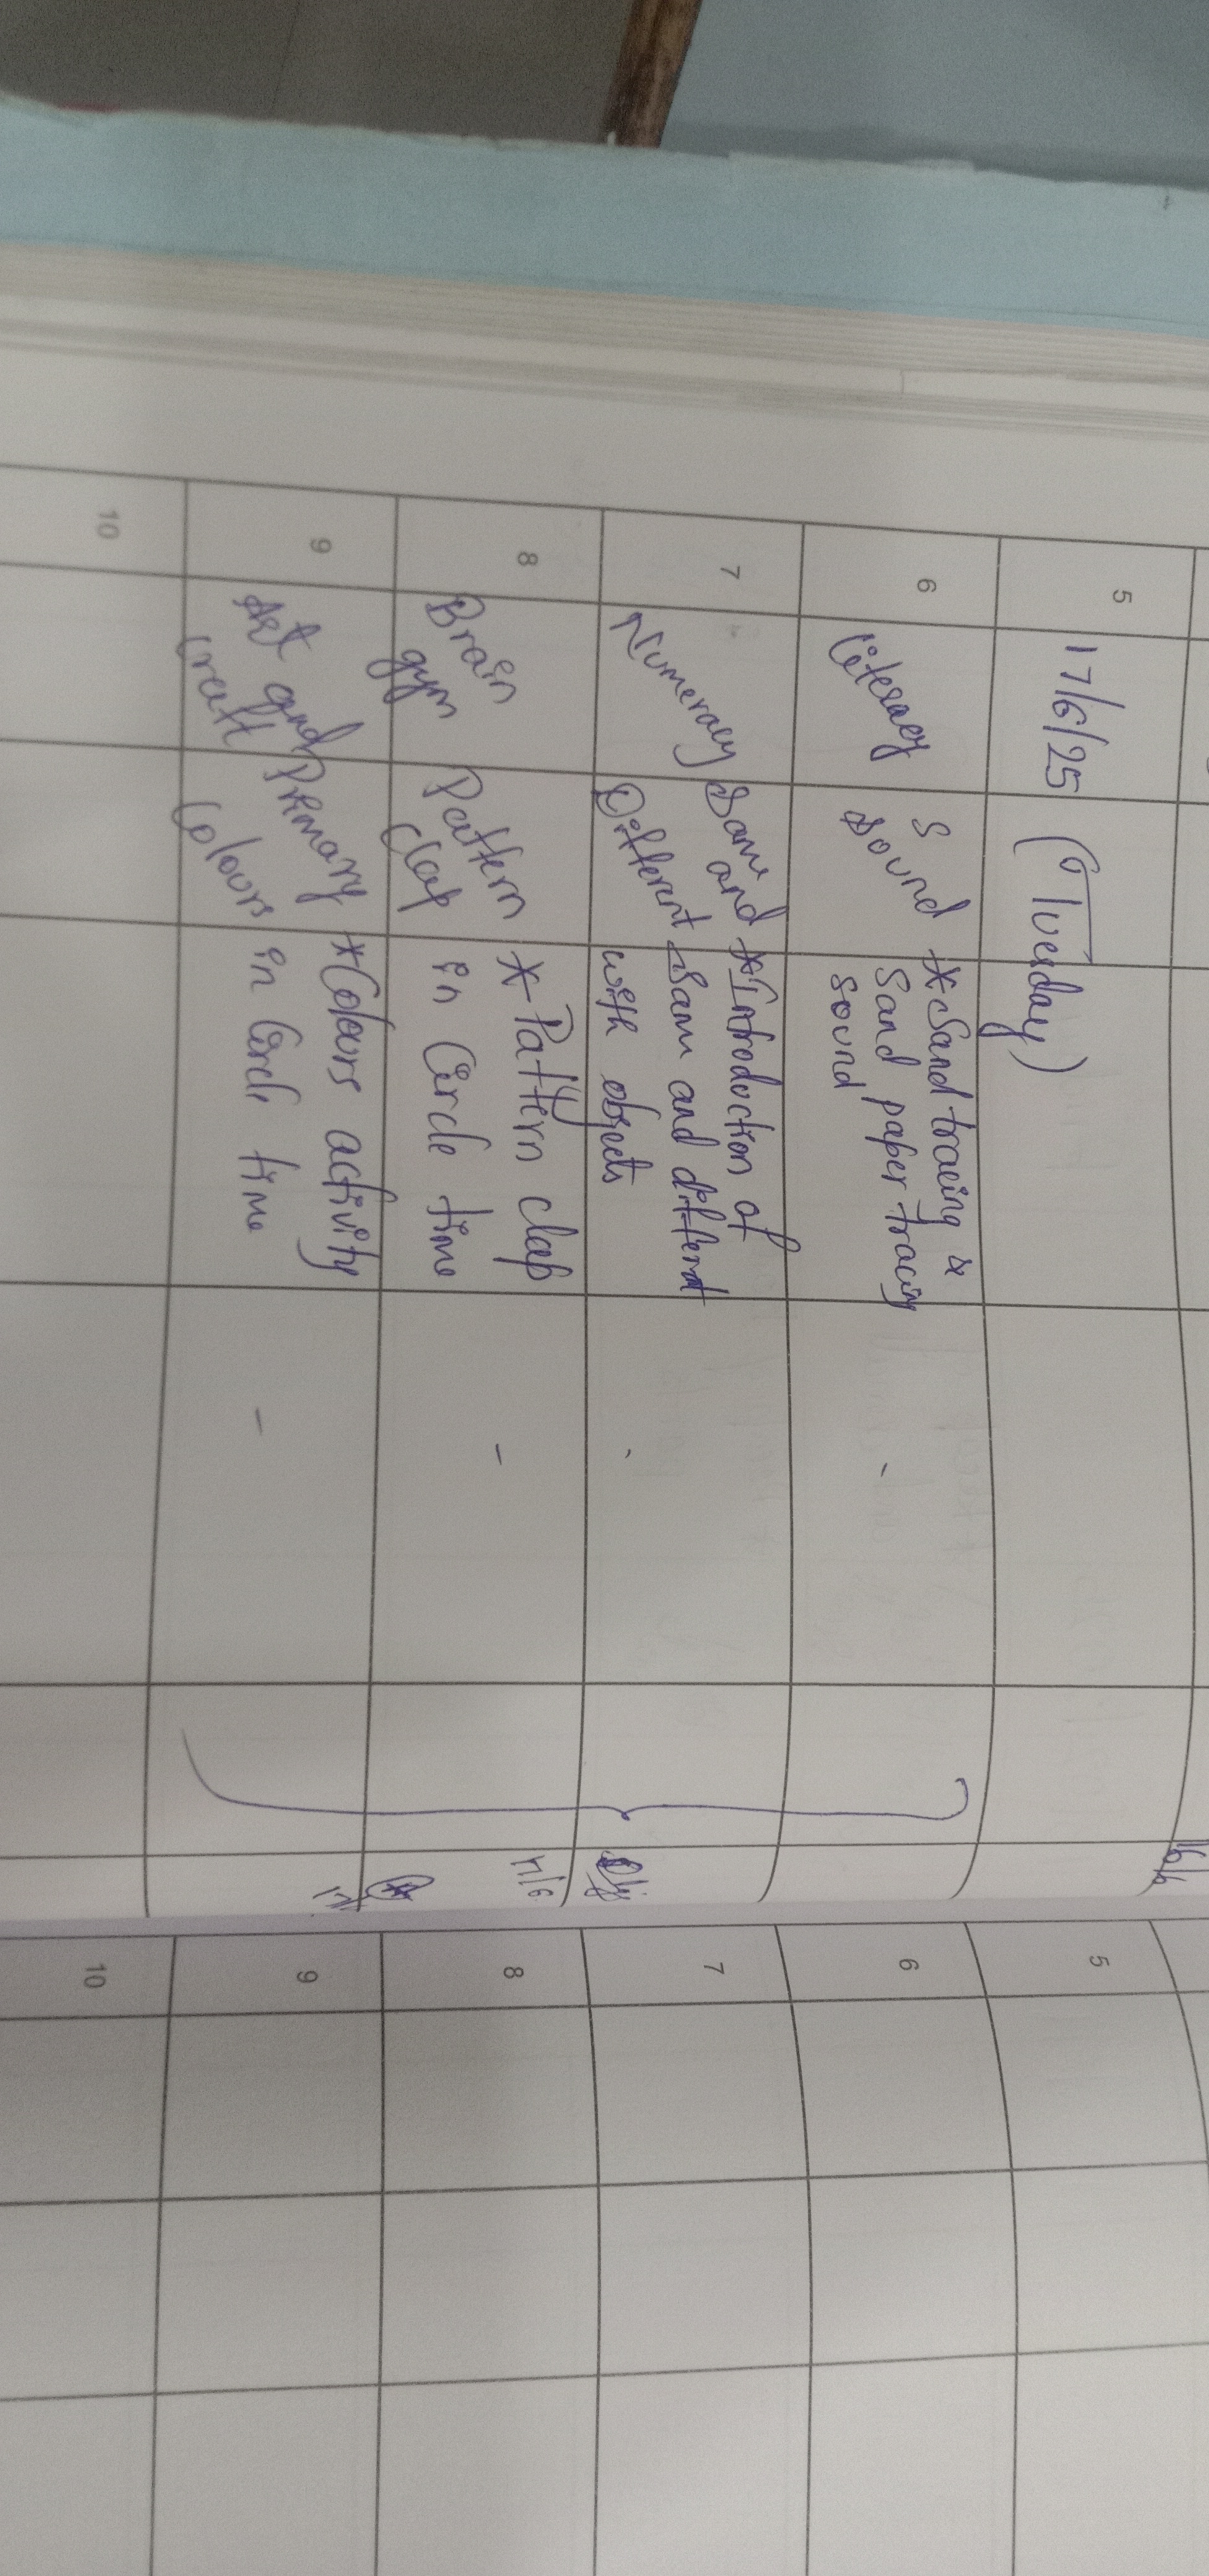 5
17/6/25 (Tuesday)
6
Literacy
S
Sound
*Sand tracing &
Sand paper tracing
sound
7
Numeracy
Same
and
Different
*Introduction of
Same and different
with objects
-
8
Brain
gym
Pattern
Clap
*Pattern clap
in Circle time
-
9
Art and
Craft
Primary
Colours
*Colours activity
in Circle time
-
10
16/6
17/6
5
6
7
8
9
10